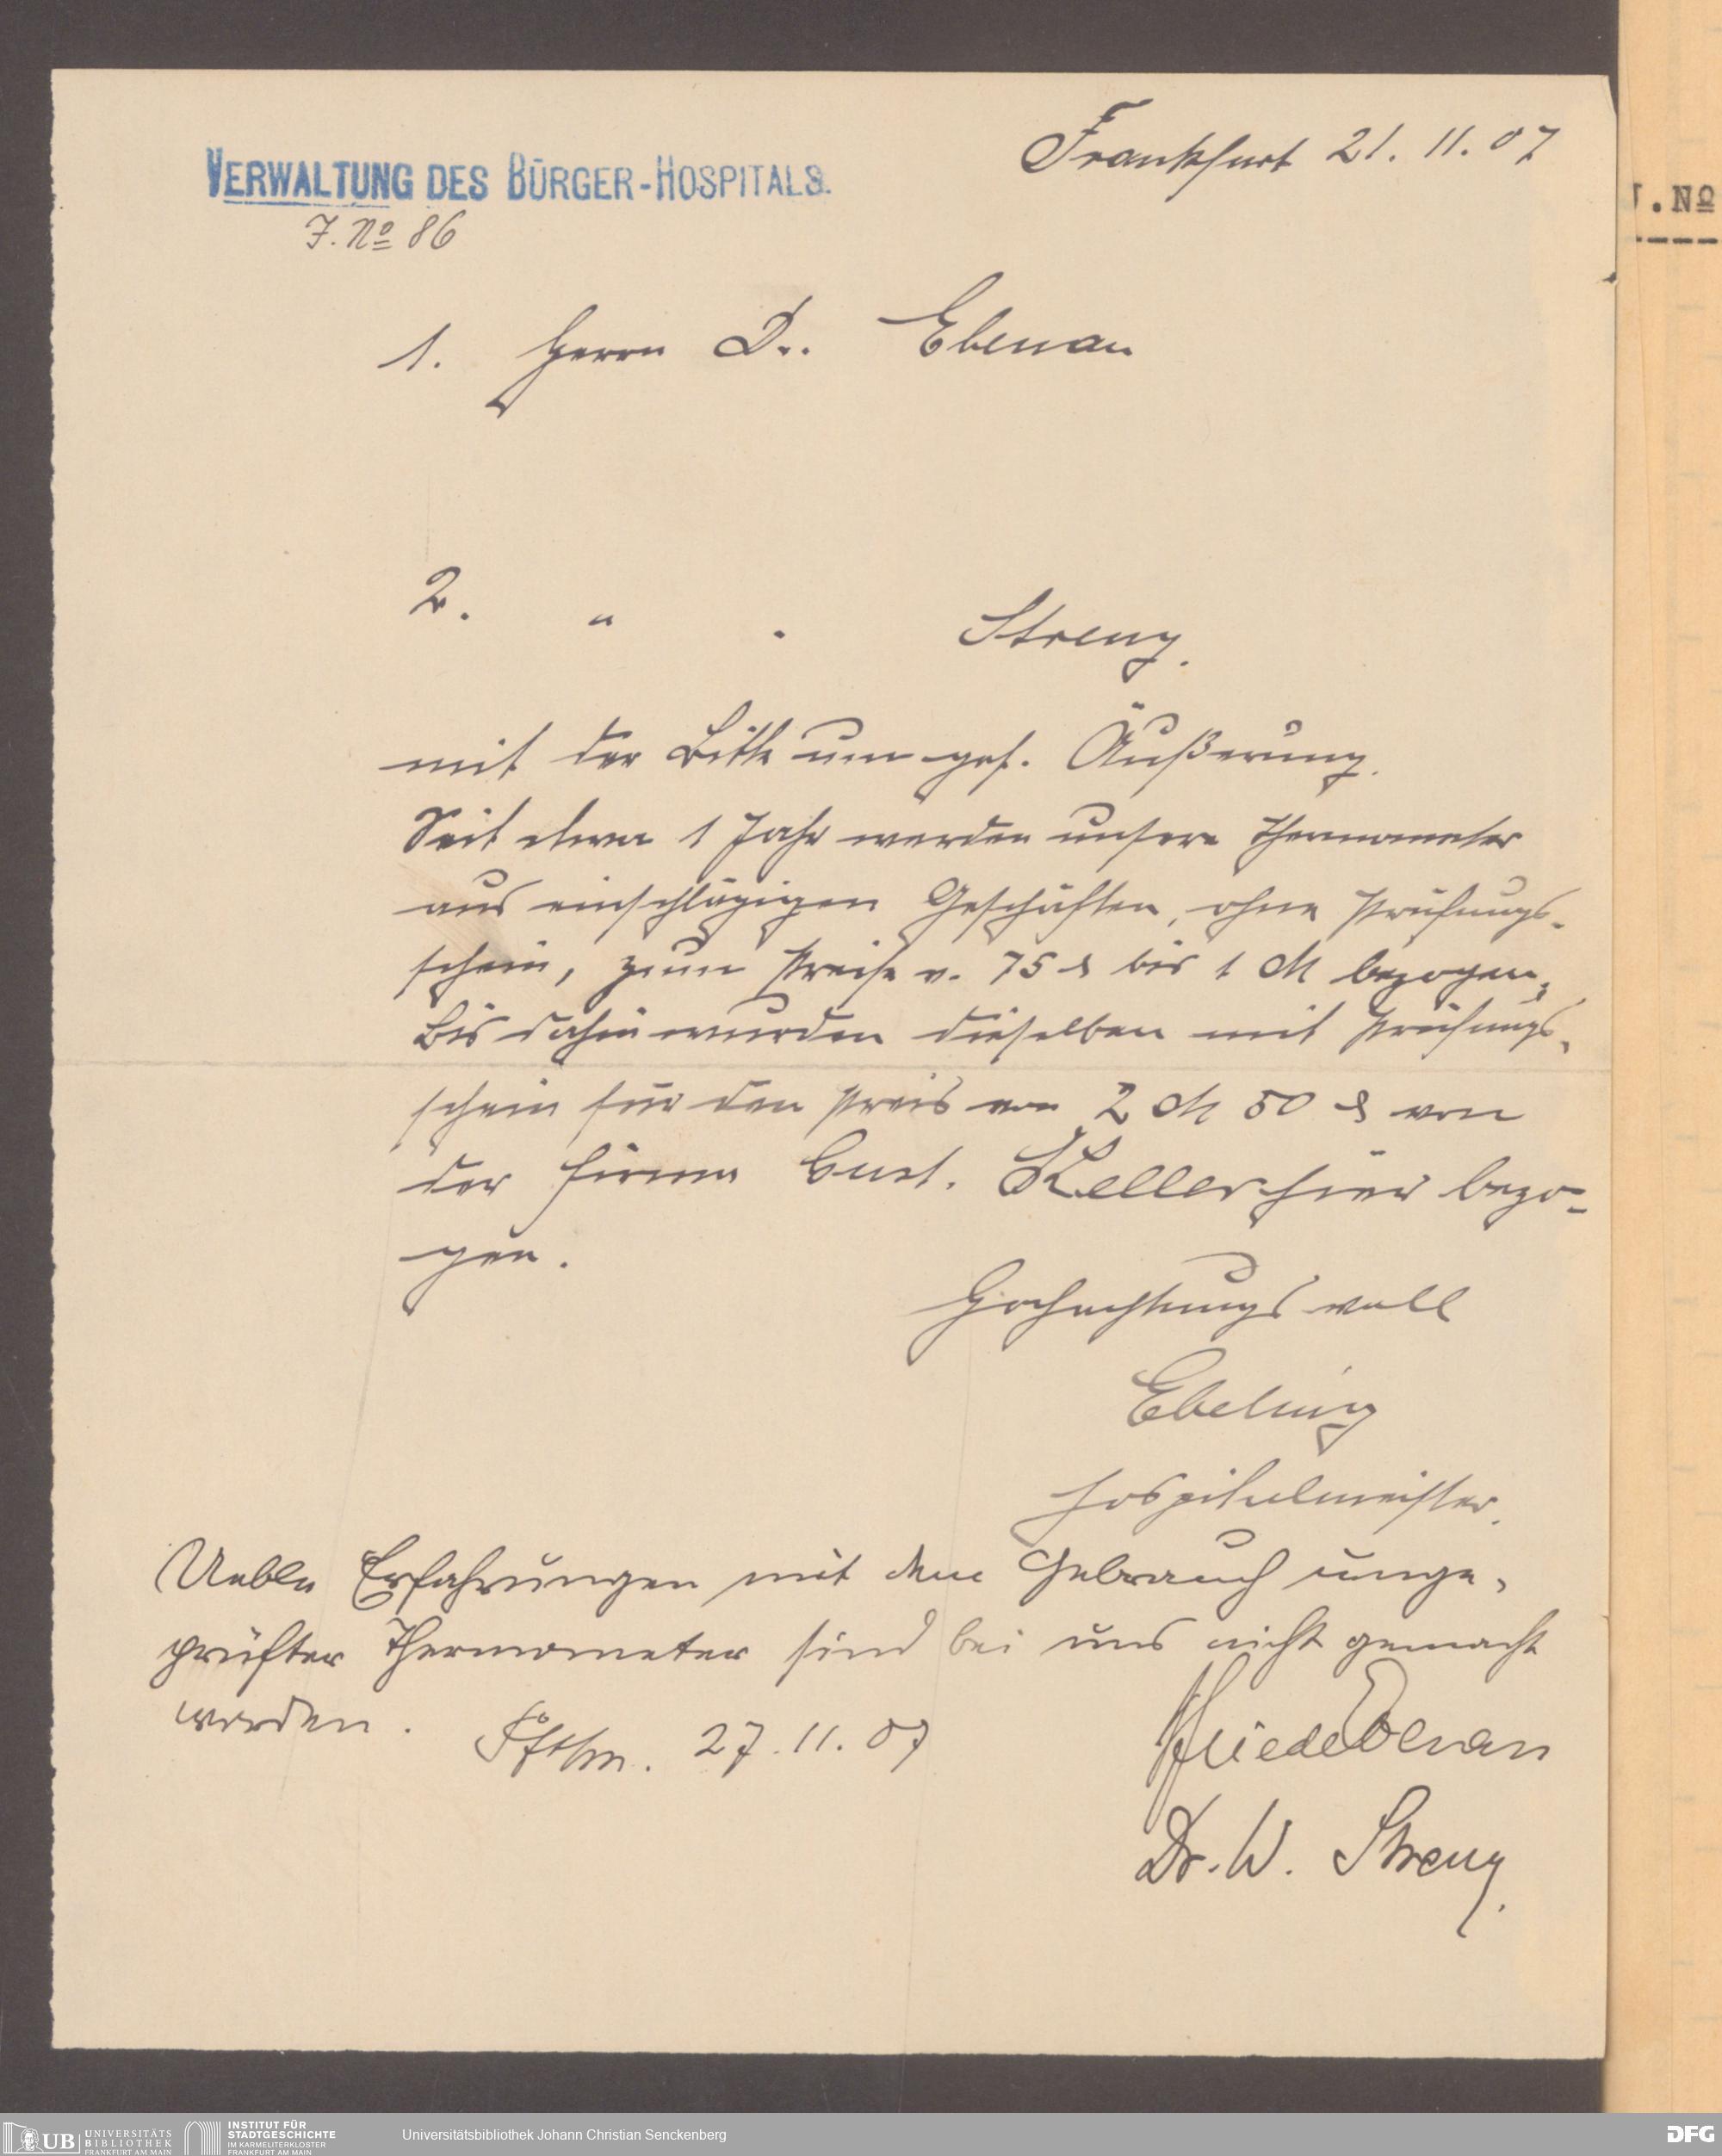 Frankfurt 21. 11. 07
VERWALTUNG DES BÜRGER-HOSPITALS.
J. No 86
1. Herrn Dr. Ebenau
2. " " Streng.
mit der Bitte um gef. Äußerung.
Seit etwa 1 Jahr werden unsere Thermometer
aus einschlägigen Geschäften, ohne Prüfungs-
schein, zum Preise v. 75 ₰ bis 1 M bezogen.
Bis dahin wurden dieselben mit Prüfungs-
schein für den Preis von 2 M 50 ₰ von
der Firma Gust. Keller hier bezo-
gen.
Hochachtungsvoll
Ebeling
Hospitalmeister.
Ueble Erfahrungen mit dem Gebrauch unge-
prüfter Thermometer sind bei uns nicht gemacht
worden. Fftm. 27. 11. 07
Ebenau
Dr. W. Streng.
J.No
UB UNIVERSITÄTS
BIBLIOTHEK
FRANKFURT AM MAIN
INSTITUT FÜR
STADTGESCHICHTE
IM KARMELITERKLOSTER
FRANKFURT AM MAIN
Universitätsbibliothek Johann Christian Senckenberg
DFG